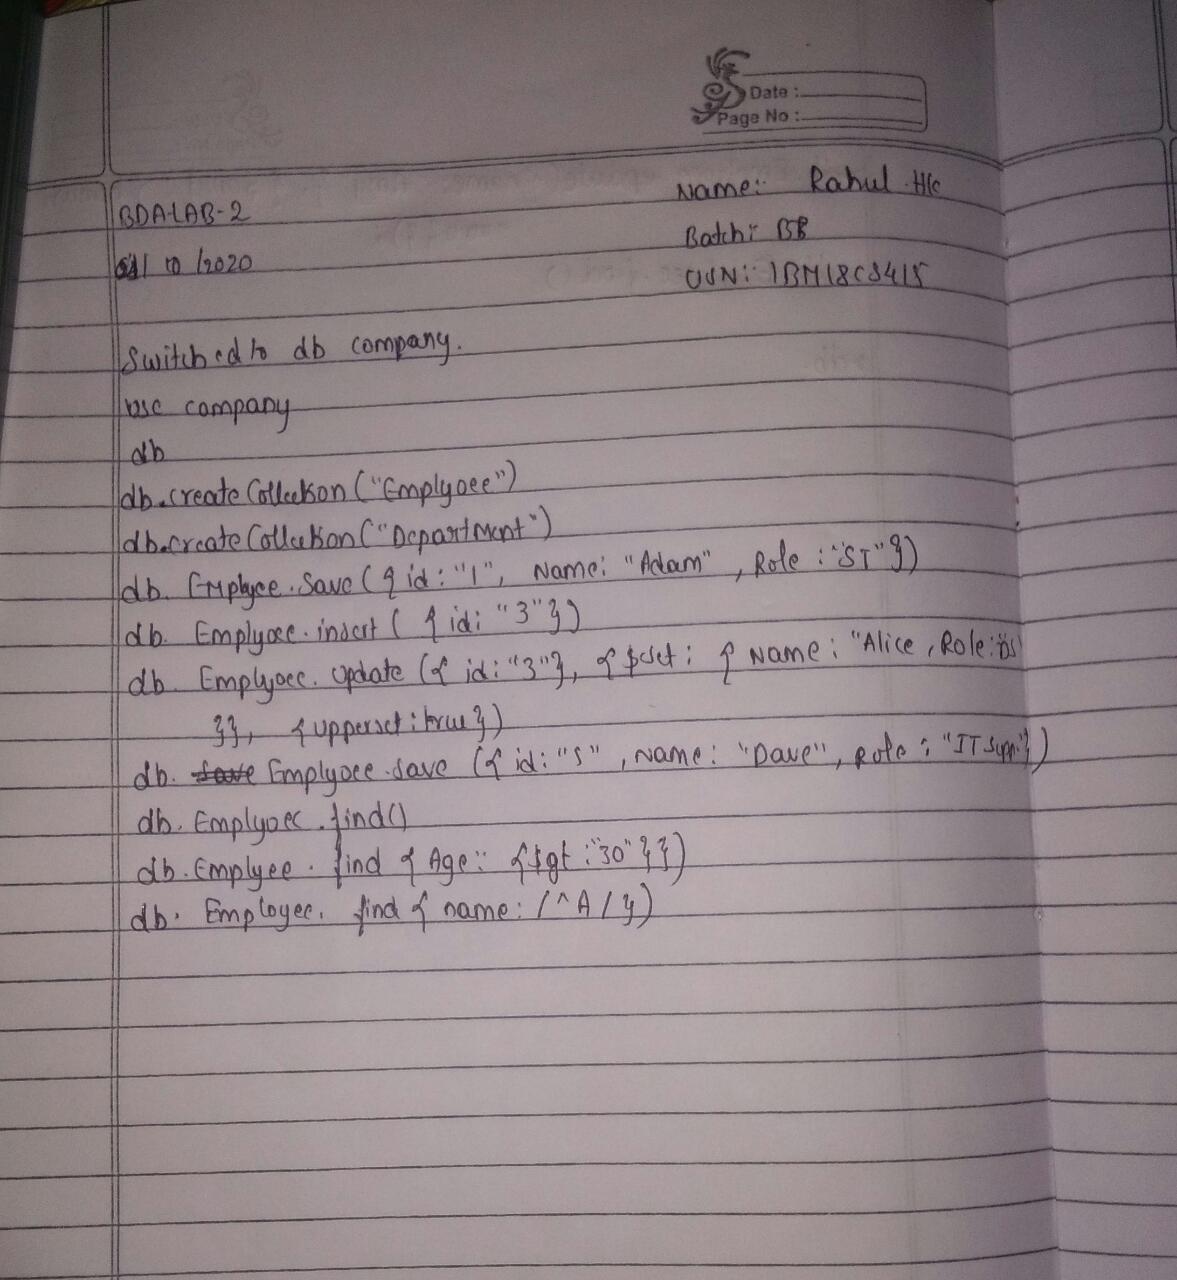 Date :
Page No :
Name: Rahul
BDA LAB-2
Batch: BB
10/2020
USN: 1BM18CS415
Switched to db company.
use company
db
db.createCollection("Emplyoee")
db.createCollection("Department")
db. Emplyee.save({ id: "1", Name: "Adam", Role : "ST"})
db. Emplyoee.insert( { id: "3"})
db. Emplyoee. update ({ id: "3"}, { $set: { Name: "Alice, Role:
}}, { upperset: true})
db. save Emplyoee.save ({ id: "5", Name: "Dave", Role : "IT Supp."})
db. Emplyoee.find()
db. Emplyee. find { Age: {$gt : "30"}})
db. Employee. find { name: /^A/})